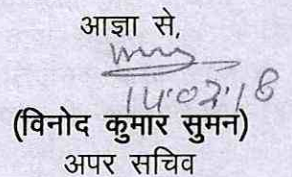 आज्ञा से,
14.02.18
(विनोद कुमार सुमन)
अपर सचिव